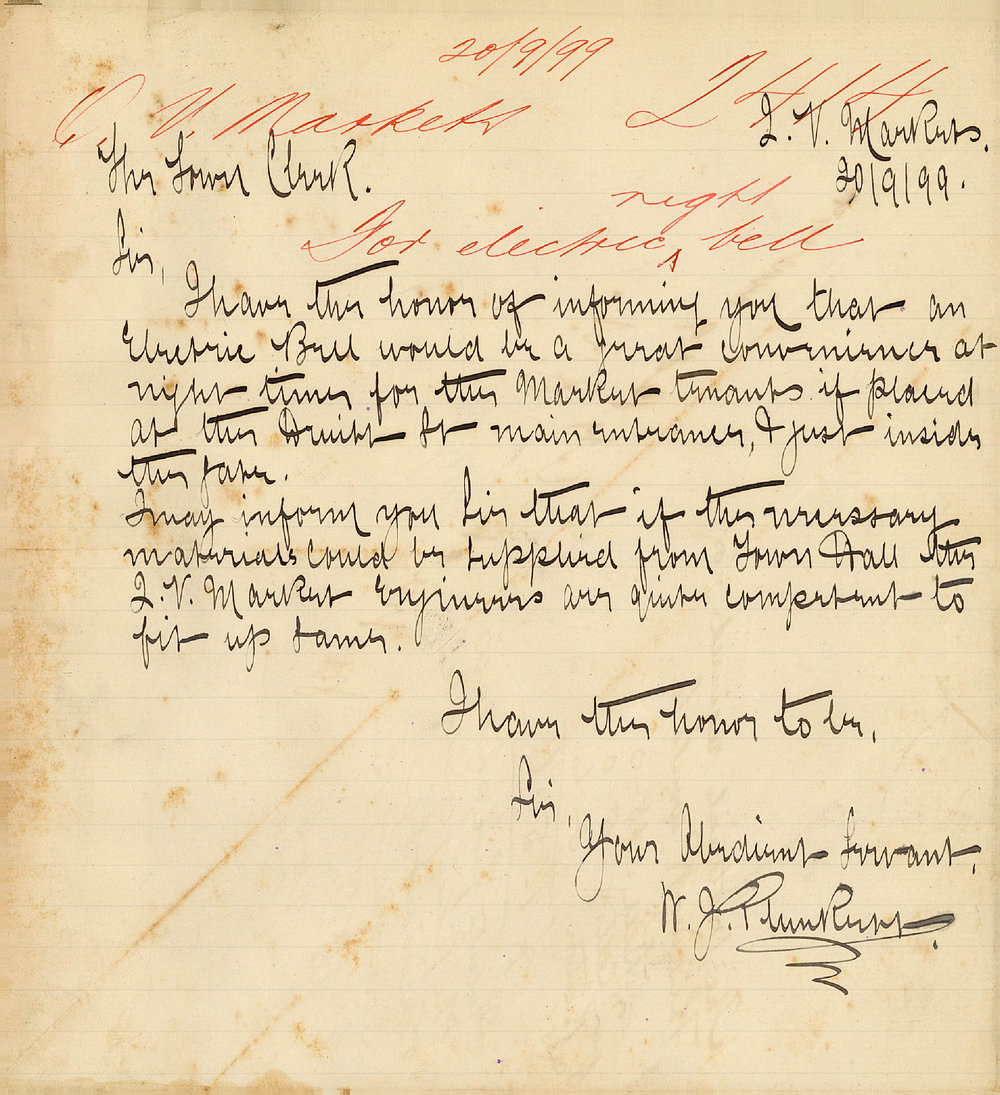 20/9/99
Q. V. Markets 2414
Q. V. Markets.
The Town Clerk.
20/9/99.
night
For electric ^ bell
Sir,
I have the honor of informing you that an
Electric Bell would be a great convenience at
night times for the Market tenants if placed
at the Druitt St main entrance, & just inside
the gate.
I may inform you Sir that if the necessary
materials could be supplied from Town Hall the
Q. V. Market Engineers are quite competent to
fit up same.
I have the honor to be,
Sir,
Your Obedient Servant,
W. J. Plunkett.